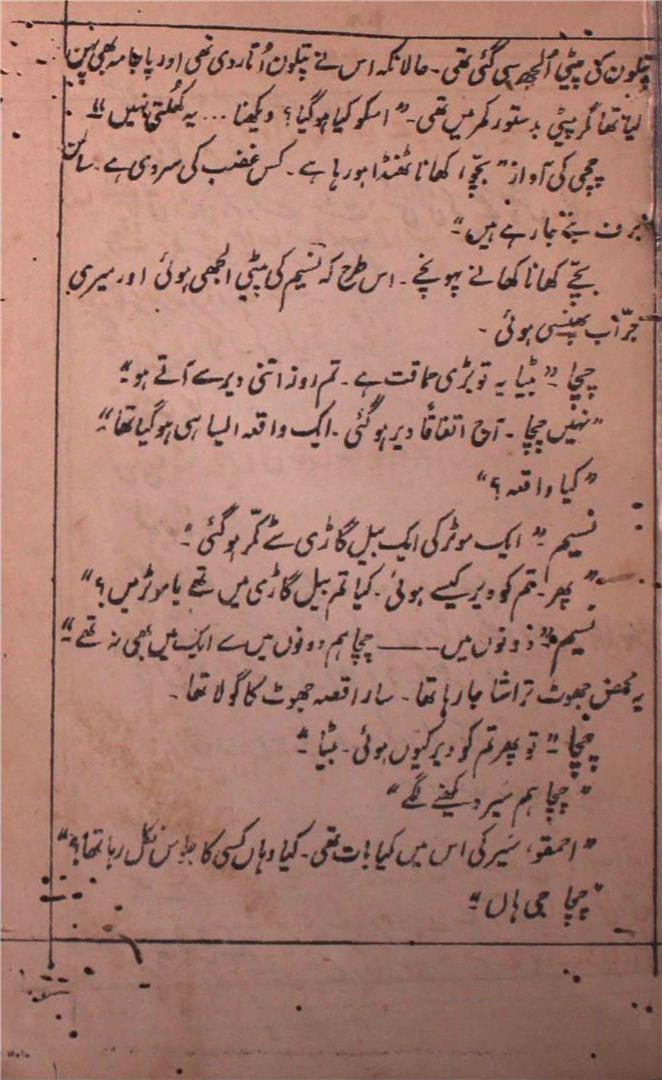 پتلون کی پیٹی اُلجھ سی گئی تھی۔ حالانکہ اس نے پتلون اُتار دی تھی اور پاجامہ بھی پہن
لیا تھا مگر پیٹی بدستور کمر میں تھی۔ "اسکو کیا ہو گیا؟ دیکھنا... یہ کھُلتی نہیں"
چچی کی آواز "بچّو، کھانا ٹھنڈا ہو رہا ہے۔ کس غضب کی سردی ہے۔ سالن
برف بنے جا رہے ہیں"
بچّے کھانا کھانے پہونچے۔ اس طرح کہ نسیم کی پیٹی الجھی ہوئی اور میری
جرّاب پھنسی ہوئی۔
چچا۔ "بیٹا یہ تو بڑی حماقت ہے۔ تم روز اتنی دیر سے آتے ہو"
"نہیں چچا۔ آج اتفاقاً دیر ہو گئی۔ ایک واقعہ ایسا ہی ہو گیا تھا"
"کیا واقعہ؟"
نسیم۔ "ایک موٹر کی ایک بیل گاڑی سے ٹکّر ہو گئی"
"پھر۔ تم کو دیر کیسے ہوئی۔ کیا تم بیل گاڑی میں تھے یا موٹر میں؟"
نسیم۔ "دونوں میں —— چچا ہم دونوں میں سے ایک میں بھی نہ تھے"
یہ محض جھوٹ تراشا جا رہا تھا۔ سارا قصہ جھوٹ کا گولا تھا۔
چچا۔ "تو پھر تم کو دیر کیوں ہوئی۔ بیٹا"
"چچا ہم سَیر دیکھنے لگے"
"احمقو، سَیر کی اس میں کیا بات تھی۔ کیا وہاں کسی کا جلوس نکل رہا تھا؟"
"چچا جی ہاں"